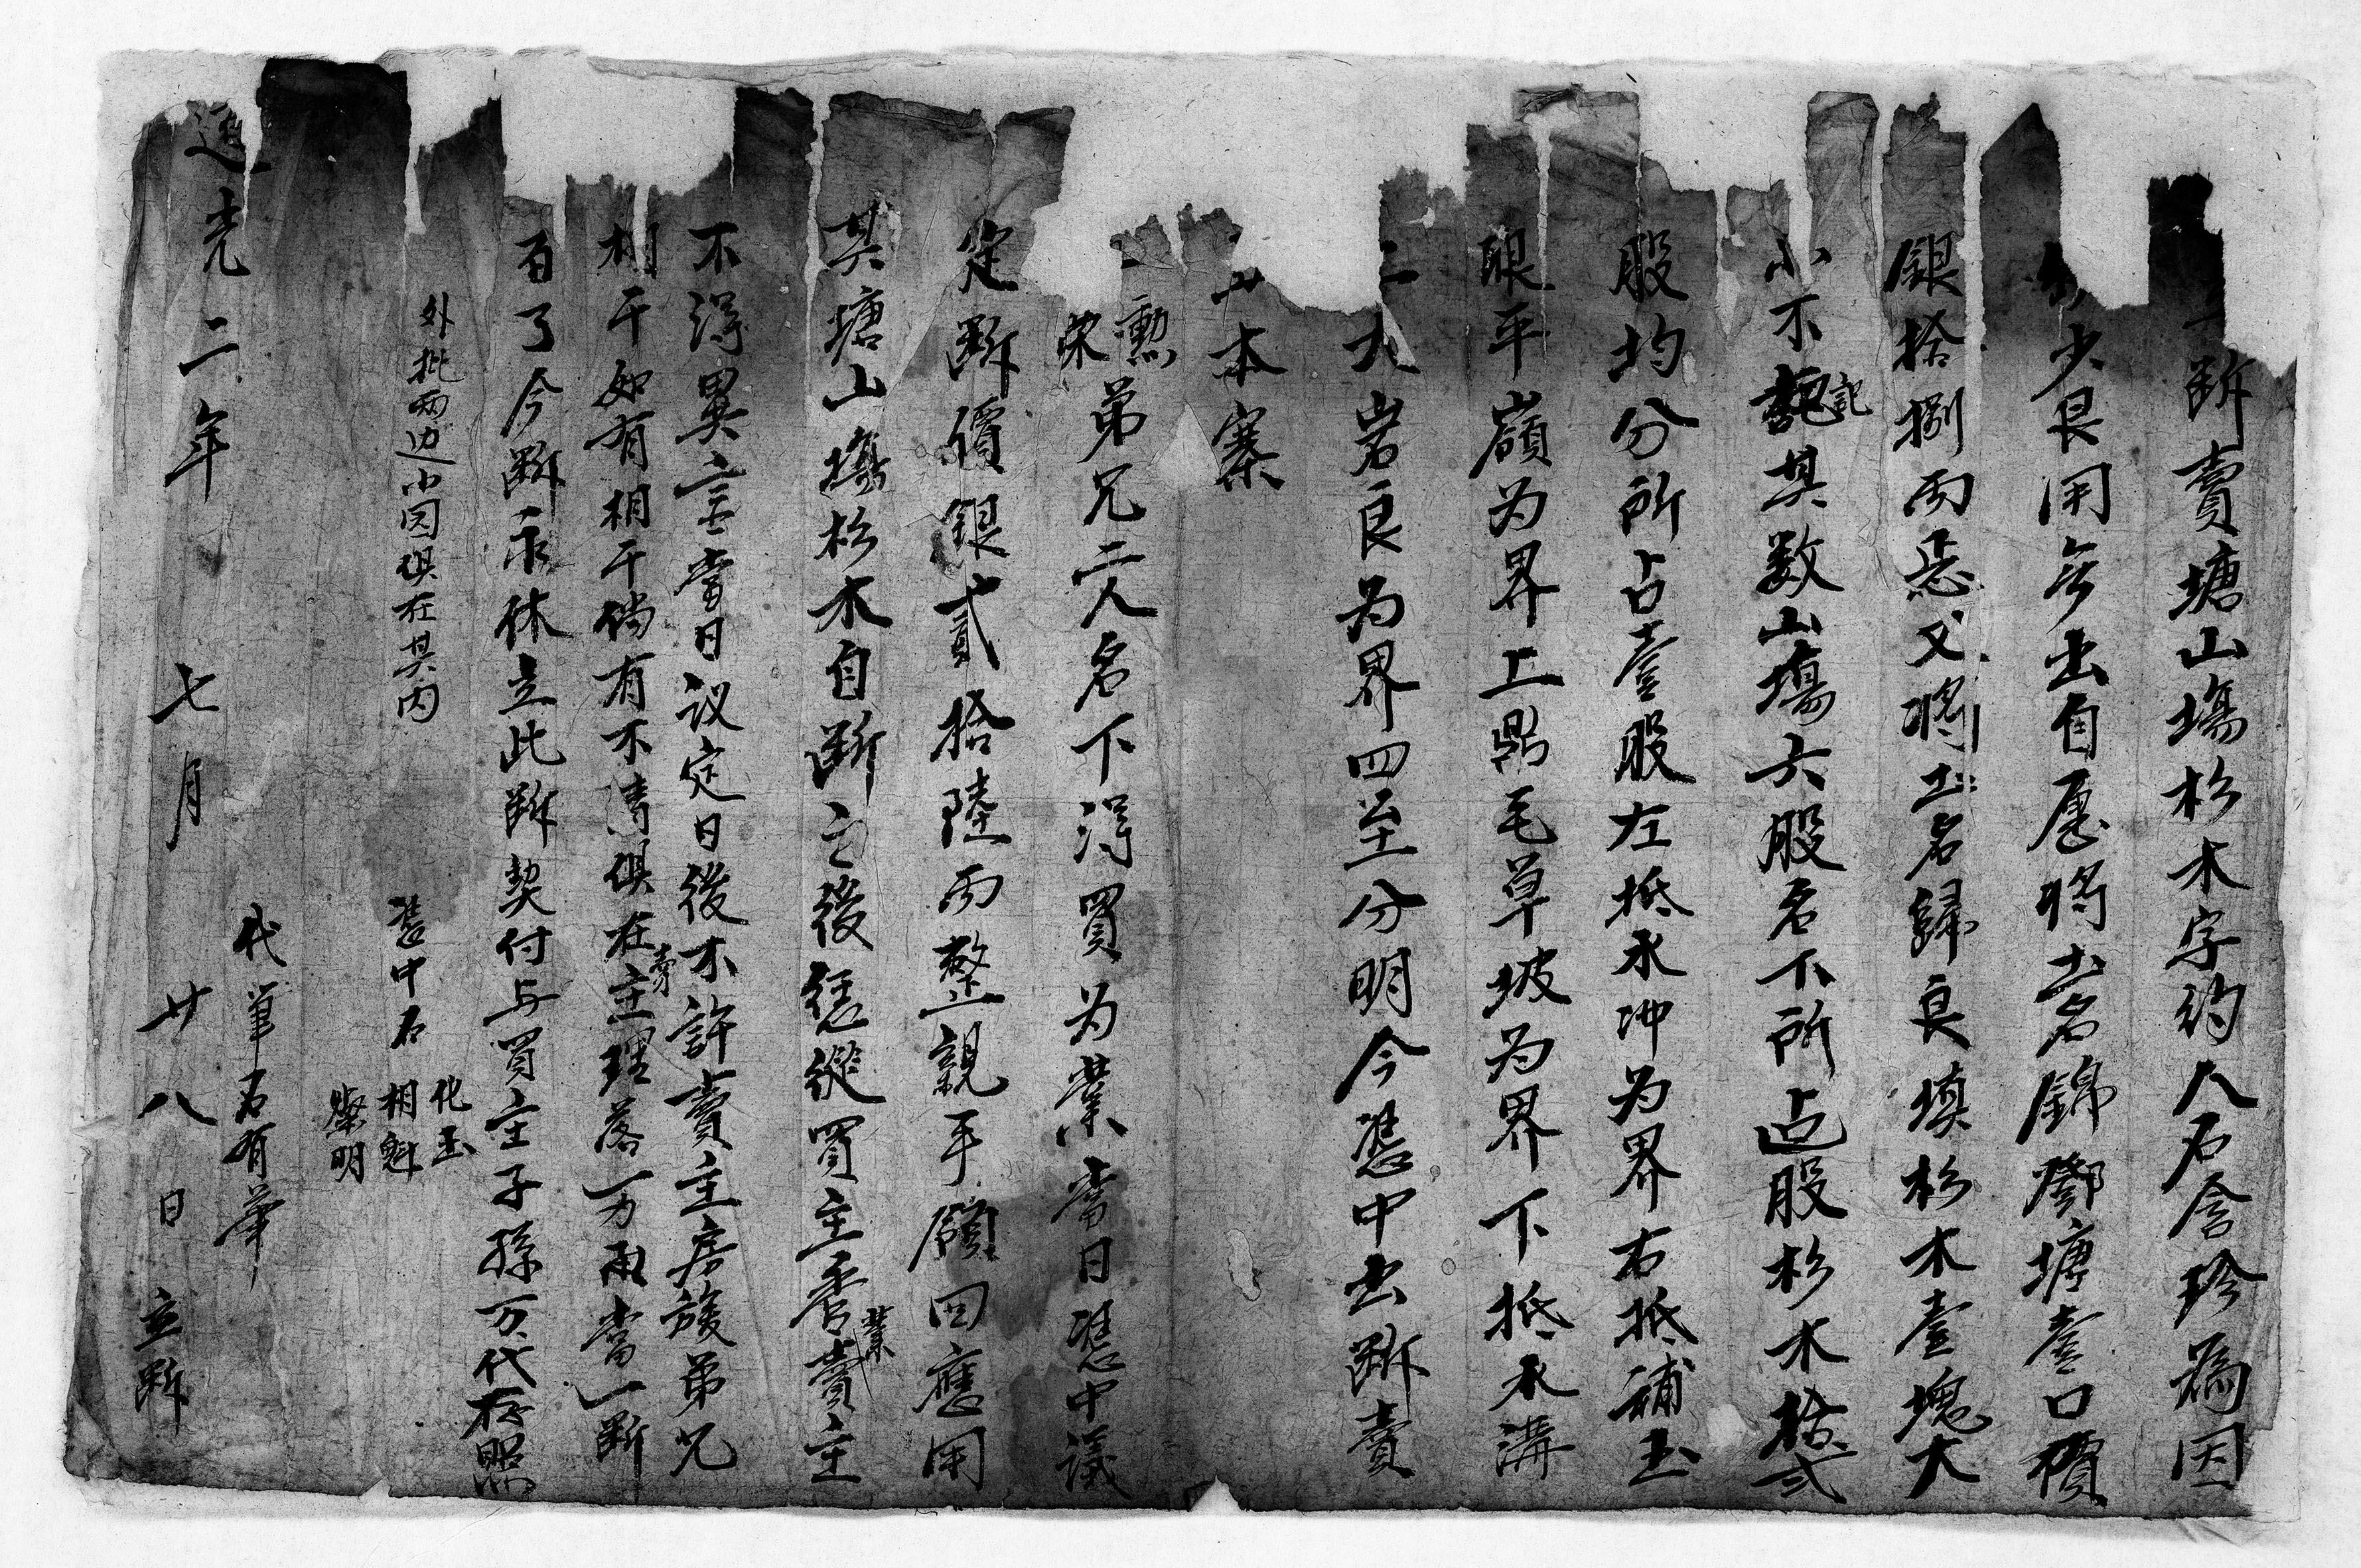 断賣塘山塲杉木字約人石含珍為因
少良用無出自愿將土名錦鄧塘壹口價
銀拾捌両恶父將土名歸良填杉木壹塊大
小不記其数山塲六股名下所占股杉木拾弍
股均分所占壹股左抵水冲為界右抵補土
眼平嶺为界上鼎毛草坡为界下抵水溝
大岩良为界四至分明今慿中出断賣
本寨
勲
荣弟兄二人名下淂買为業當日慿中議
定断價銀貳拾陸両整親手領回應用
其塘山塲杉木自断之後恁從買主管業賣主
不淂異言當日议定日後不許賣主房族弟兄
相干如有相干倘有不清俱在賣主理落一力承當一断
百了今断永休立此断契付与買主子孫万代存照
外批兩边小因俱在其内
慿中石
化玉
相魁
燦明
代筆石有華
道光二年七月廿八日立断